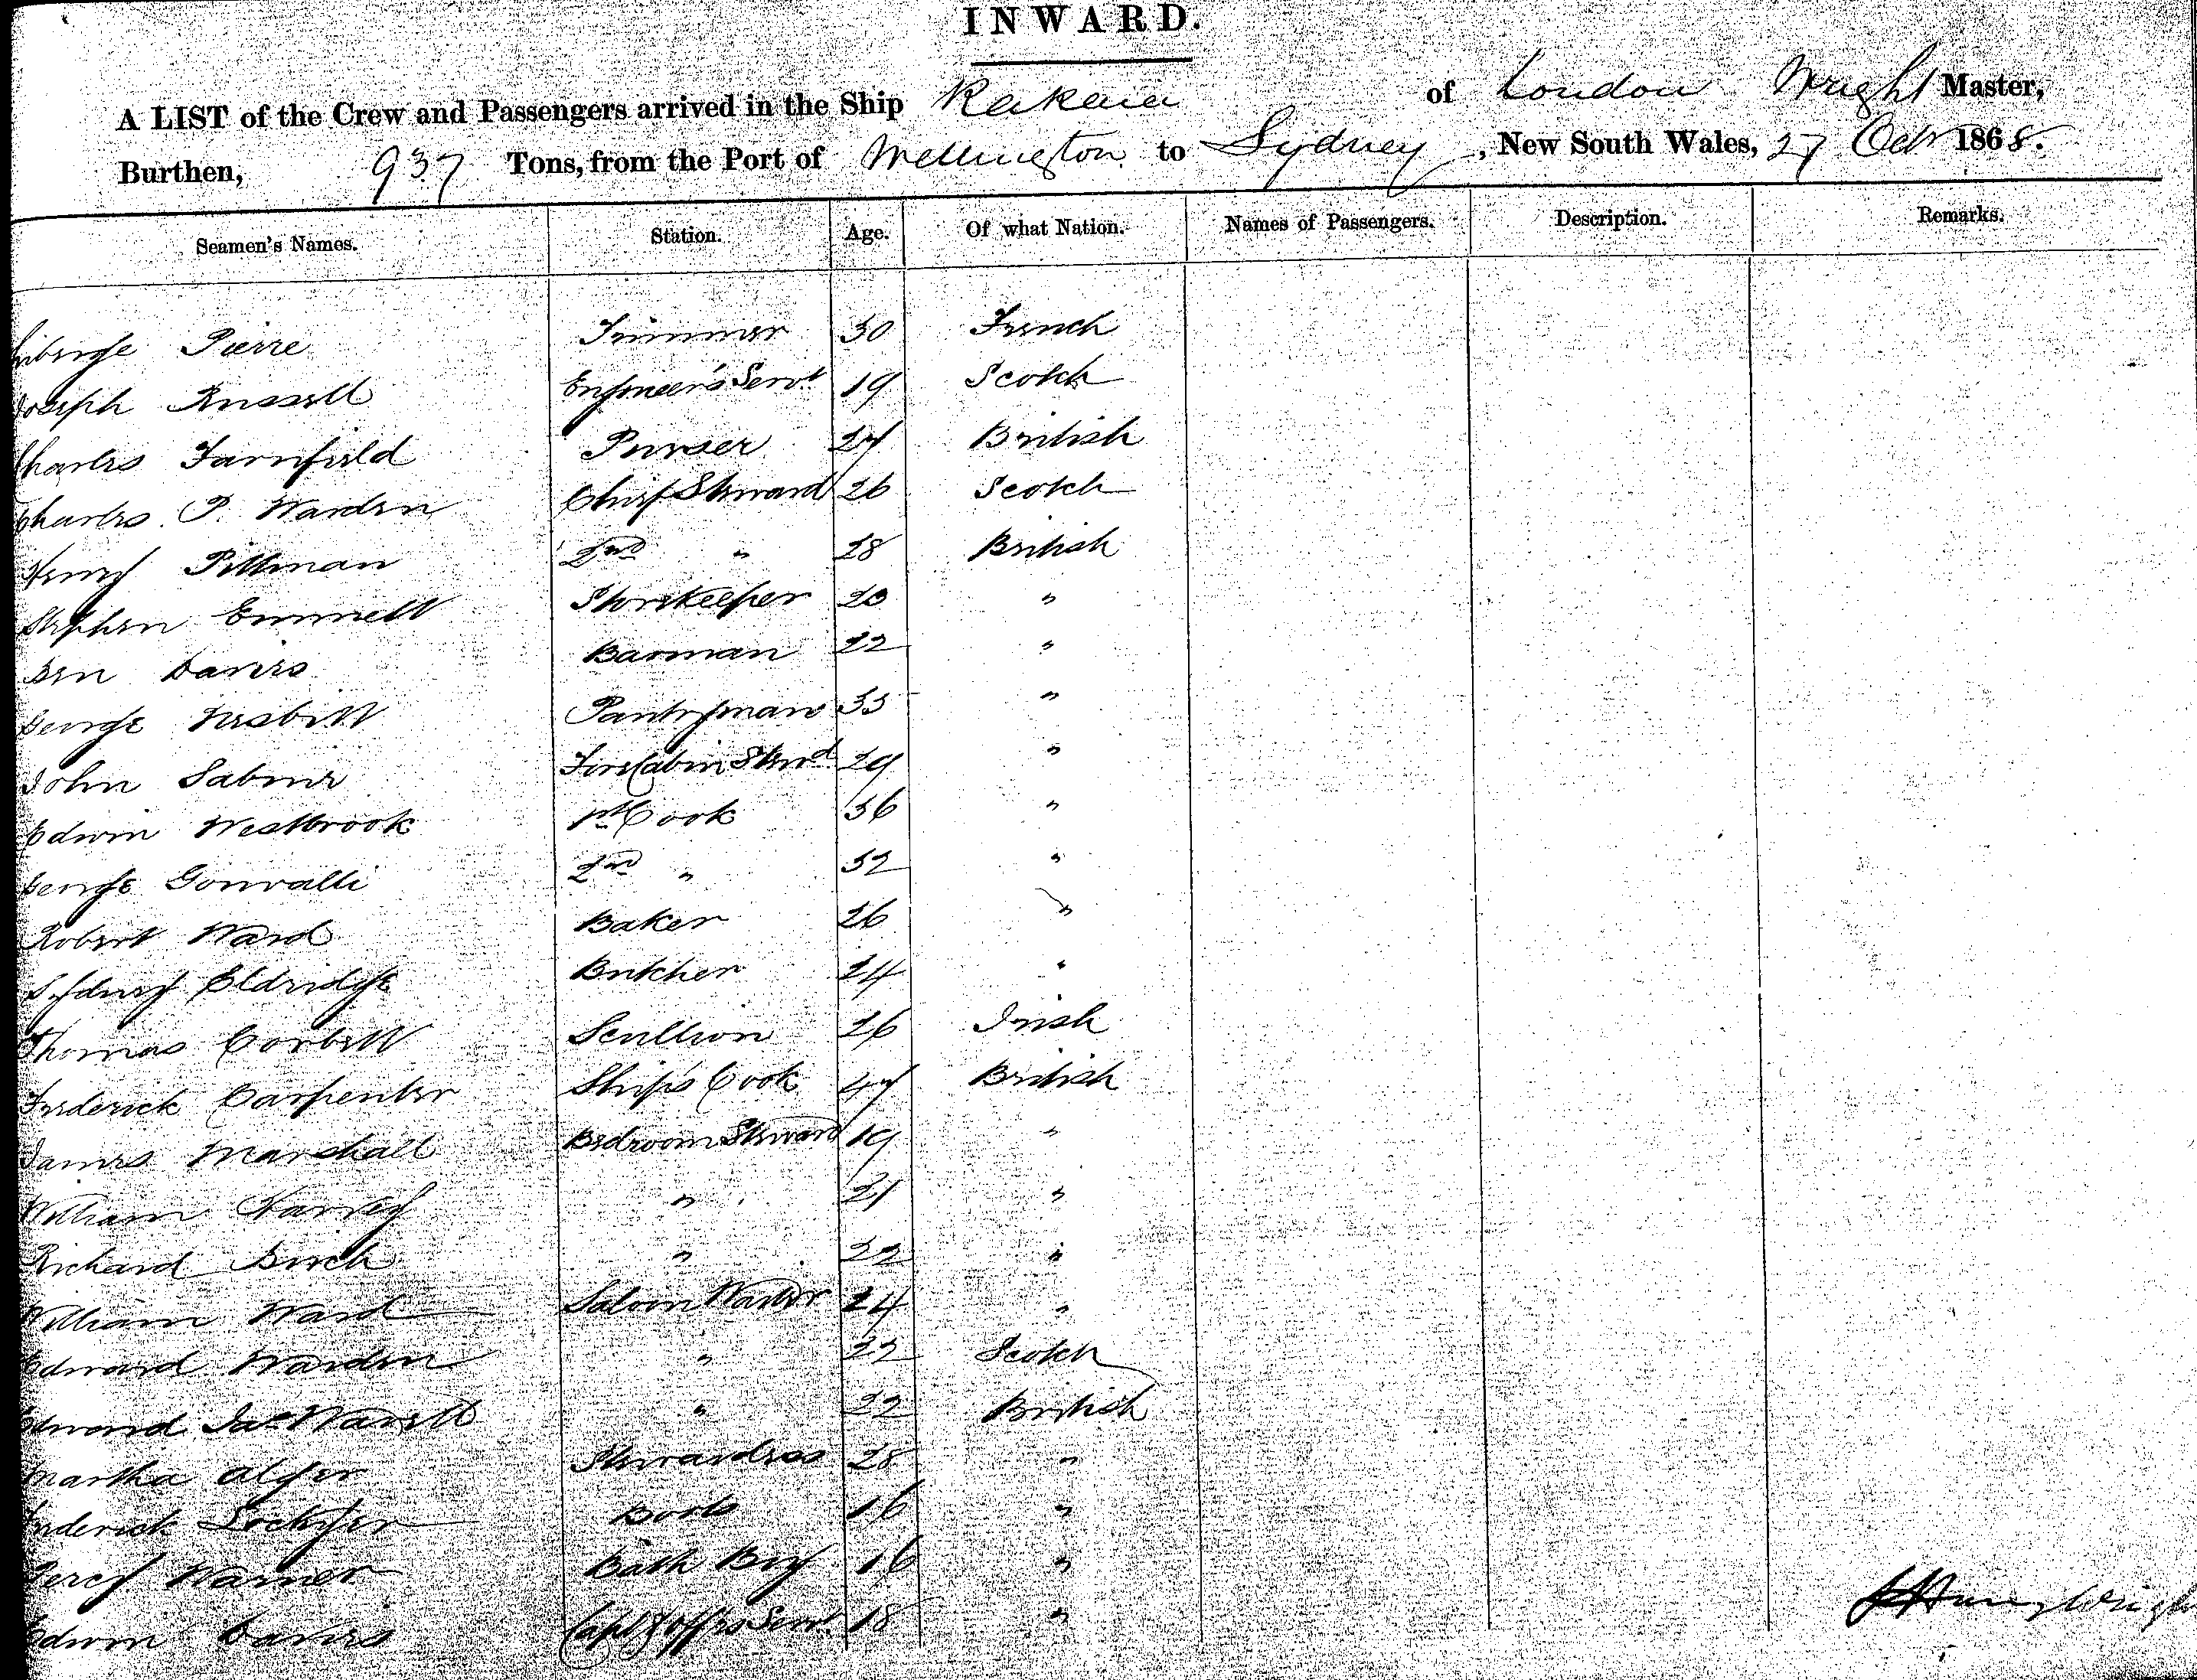 INWARD.
A LIST of the Crew and Passengers arrived in the Ship Rakaia of London Wright Master,
Burthen, 937 Tons, from the Port of Wellington to Sydney, New South Wales, 27 Octr 1868.
Seamen's Names. Station. Age. Of what Nation. Names of Passengers. Description. Remarks.
Pierre Trimmer 30 French
Joseph Russell Engineer's Servt 19 Scotch
Charles Farnfield Purser 27 British
Charles P. Warden Chief Steward 26 Scotch
Henry Pittman 2nd " 28 British
Stephen Emmett Storekeeper 23 "
Ben Davies Barman 22 "
George Nesbitt Pantryman 33 "
John Fore Cabin Stewd 29 "
Edwin Westbrook 1st Cook 36 "
George Gonvalli 2nd " 32 "
Robert Ward Baker 26 "
Sydney Eldridge Butcher 24 "
Thomas Corbett Scullion 26 Irish
Frederick Carpenter Ship's Cook 47 British
James Marshall Bedroom Steward 19 "
William Harvey " 21 "
Richard Birch " 22 "
William Ward Saloon Waiter 24 "
Edward Warden " 22 Scotch
Edward Jas " 22 British
Martha Alger Stewardess 28 "
Frederick Lockyer Boots 16 "
Percy Warner Bath Boy 16 "
Edwin Davies Capt & Offrs Servt. 18 "
Henry Wright